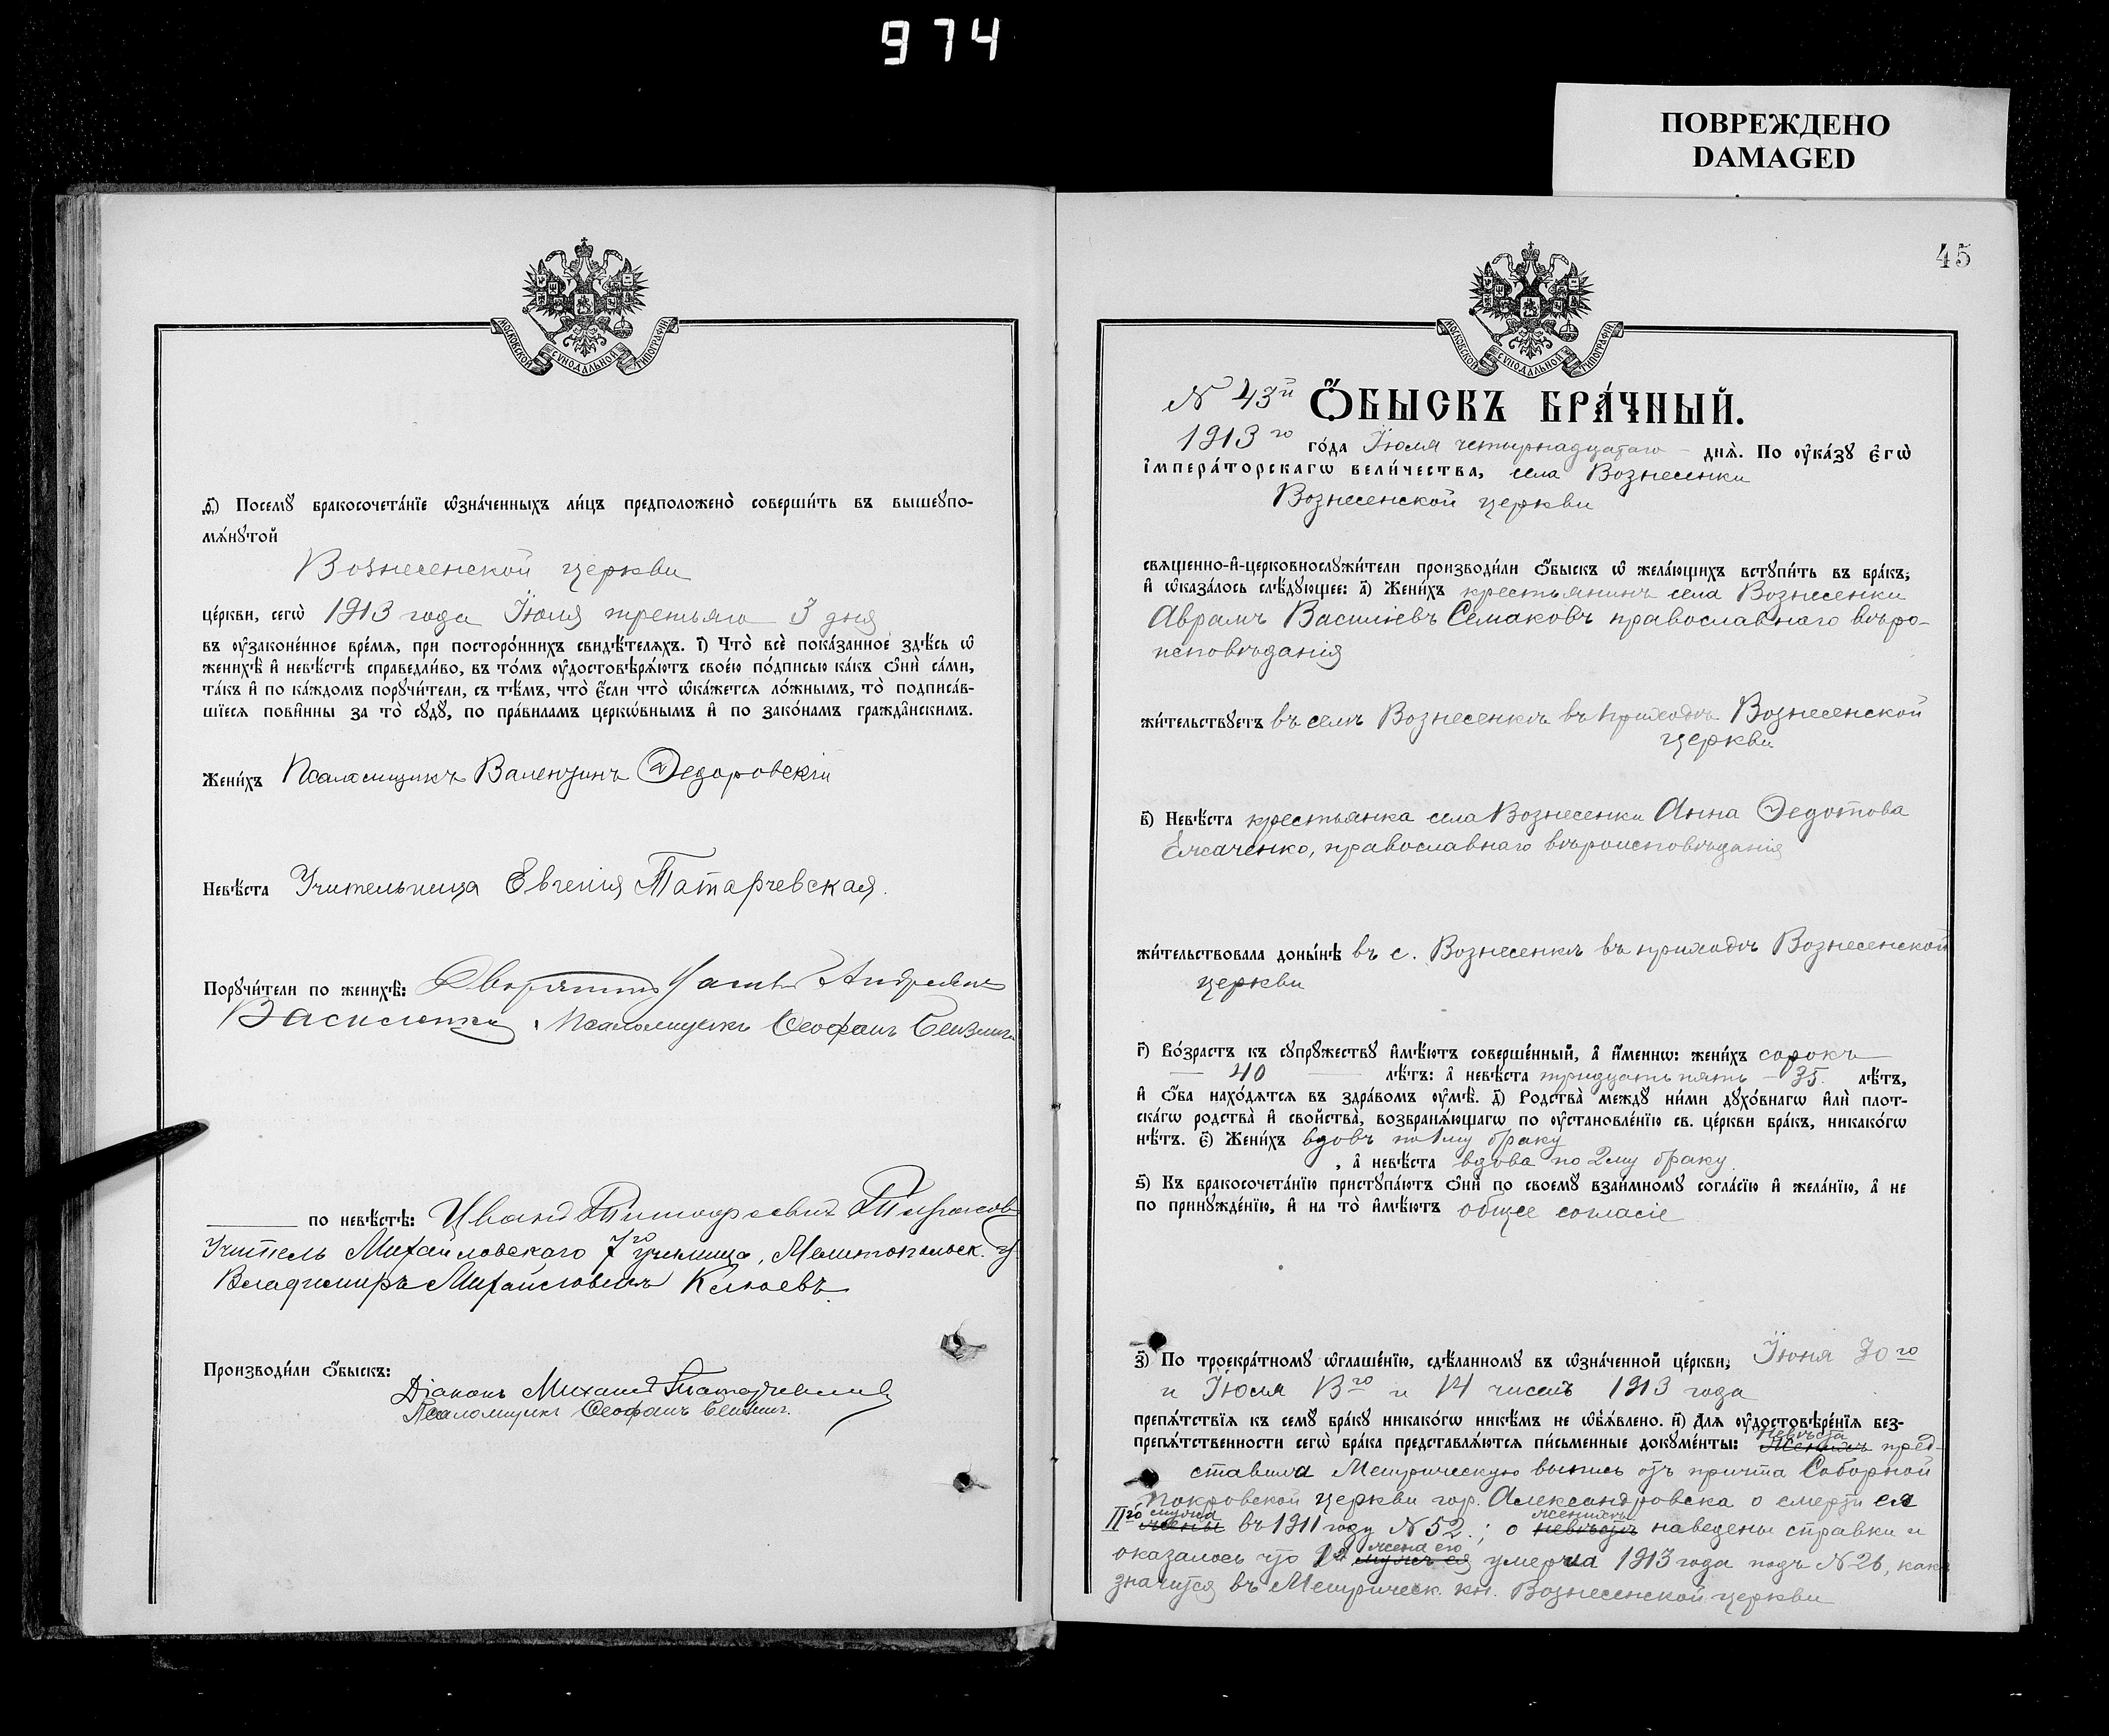 974
ПОВРЕЖДЕНО
DAMAGED
МОСКОВСКОЙ СѴНОДАЛЬНОЙ ТИПОГРАФІИ
д҃) Посемꙋ бракосочета́нїе ѡ҆зна́ченныхъ ли́цъ предположено̀ соверши́ть въ вышеꙋпо-
мѧ́нꙋтой
Вознесенской церкви
це́ркви, сегѡ̀ 1913 года Іюля третьяго 3 дня
въ ᲂу҆зако́ненное вре́мѧ, при посторо́ннихъ свидѣ́телѧхъ. і҃) Что̀ всѐ пока́занное здѣ́сь ѡ҆
женихѣ̀ и҆ невѣ́стѣ справедли́во, въ то́мъ ᲂу҆достовѣрѧ́ютъ свое́ю по́дписью ка́къ ѻ҆нѝ са́ми,
та́къ и҆ по ка́ждомъ порꙋчи́тели, съ тѣ́мъ, что̀ є҆́сли что̀ ѡ҆ка́жетсѧ ло́жнымъ, то̀ подписа́в-
шїесѧ пови́нны за то̀ сꙋдꙋ̀, по пра́виламъ церко́внымъ и҆ по зако́намъ гражда́нскимъ.
Жени́хъ Псаломщикъ Валентинъ Ѳедоровскій
Невѣ́ста Учительница Евгенія Татарчевская.
Порꙋчи́тели по женихѣ̀: Дворянинъ Андреевич
Василенко, Псаломщикъ Ѳеофанъ
по невѣ́стѣ: Иванъ Тимофеевич Тарасов
Учитель Михайловскаго 7го училища, Мелитопольск. у.
Владимиръ Михайловичъ Клюевъ.
Производи́ли ѻ҆́быскъ:
Діаконъ Михаилъ Татарчевскій
Псаломщикъ Ѳеофанъ
45
МОСКОВСКОЙ СѴНОДАЛЬНОЙ ТИПОГРАФІИ
N 43й Ѻ҆́БЫСКЪ БРА́ЧНЫЙ.
1913го го́да Іюля четырнадцатаго днѧ̀. По ᲂу҆ка́зꙋ Є҆гѡ̀
І҆мпера́торскагѡ вели́чества, села Вознесенки
Вознесенской церкви
свѧще́нно-и҆-церковнослꙋжи́тели производи́ли ѻ҆́быскъ ѡ҆ жела́ющихъ встꙋпи́ть въ бра́къ,
и҆ ѡ҆каза́лось слѣ́дꙋющее: а҃) Жени́хъ крестьянинъ села Вознесенки
Аврамъ Василіевъ Семаковъ православнаго вѣро-
исповѣданія
жи́тельствꙋетъ въ селѣ Вознесенкѣ въ приходѣ Вознесенской
церкви
в҃) Невѣ́ста крестьянка села Вознесенки Анна Ѳедотова
православнаго вѣроисповѣданія
жи́тельствовала доны́нѣ въ с. Вознесенкѣ въ приходѣ Вознесенской
церкви
г҃) Во́зрастъ къ сꙋпрꙋ́жествꙋ и҆мѣ́ютъ соверше́нный, а҆ и҆́меннѡ: жени́хъ сорокъ
40 лѣ́тъ: а҆ невѣ́ста тридцать пять – 35. лѣ́тъ,
и҆ ѻ҆́ба нахо́дѧтсѧ въ здра́вомъ ᲂу҆мѣ̀. д҃) Родства̀ междꙋ ни́ми дꙋхо́внагѡ и҆лѝ плот-
ска́гѡ родства̀ и҆ свойства̀, возбранѧ́ющагѡ по ᲂу҆становле́нїю св. це́ркви бра́къ, никако́гѡ
нѣ́тъ. є҃) Жени́хъ вдовъ по 1му браку
, а҆ невѣ́ста вдова по 2му браку
ѕ҃) Къ бракосочета́нїю пристꙋпа́ютъ ѻ҆нѝ по своемꙋ̀ взаи́мномꙋ согла́сїю и҆ жела́нїю, а҆ не
по принꙋжде́нїю, и҆ на то̀ и҆мѣ́ютъ общее согласіе
з҃) По троекра́тномꙋ ѡ҆глаше́нїю, сдѣ́ланномꙋ въ ѡ҆зна́ченной це́ркви, Іюня 30го
и Іюля и 14 чиселъ 1913 года
препѧ́тствїѧ къ семꙋ̀ бра́кꙋ никако́гѡ никѣ́мъ не ѡ҆б̾ѧ́влено. и҃) Длѧ ᲂу҆достовѣре́нїѧ без-
препѧ́тственности сегѡ̀ бра́ка представлѧ́ютсѧ пи́сьменные докꙋме́нты: Невѣста Женихъ пред-
ставила Метрическую выпись отъ причта Соборной
Покровской церкви гор. Александровска о смерти ея
IIго мужа жены въ 1911 году N 52.; о женихѣ невѣстѣ наведены справки и
оказалось что 1я жена его мужъ ея умерла 1913 года подъ N 26, какъ
значится въ Метрическ. кн. Вознесенской церкви